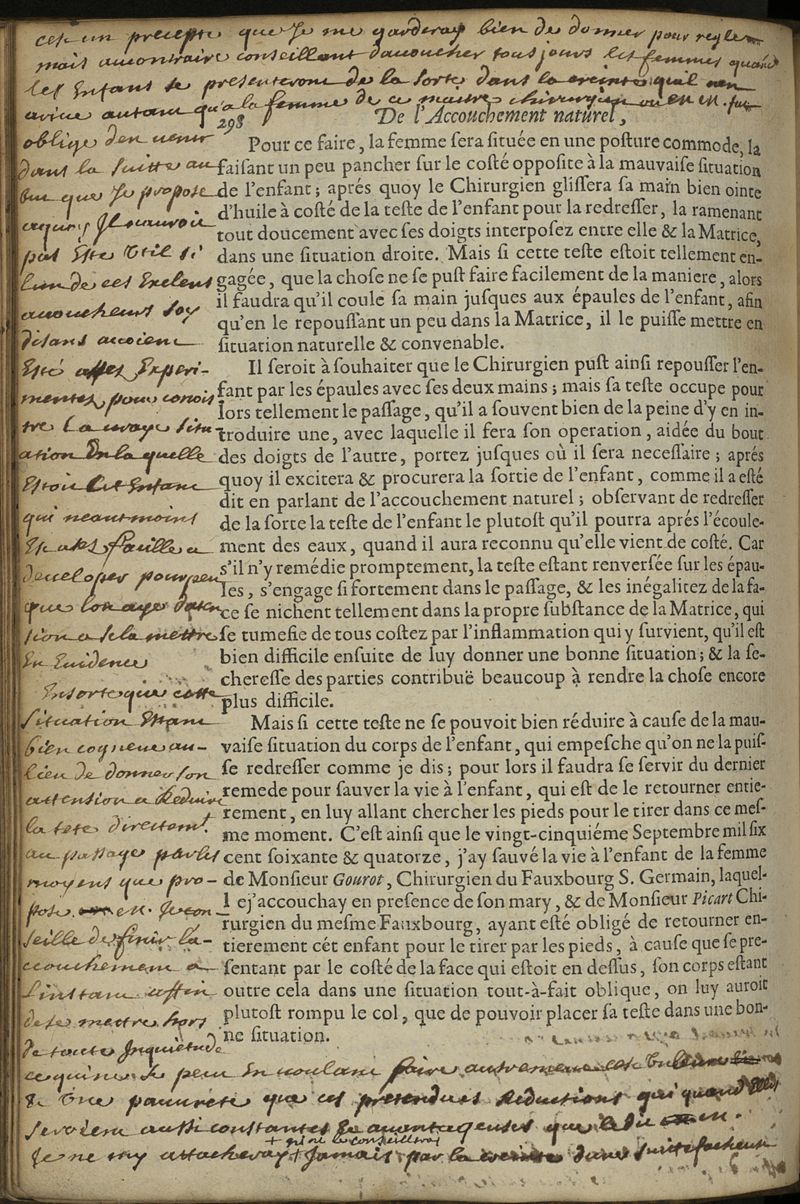 cest un precepte que Je me garderay bien de donner pour regle
mais aucontraire conseillant daccoucher tousjours les femmes quand
les Enfans se presenteront de la sorte dans la crainte quil nen
arive autant qua la femme de ce maitre chirurgien ou
oblige den venir
dans la suitte au
but que Je propose
Il sauroit
pas Estre Util si
lieu de ces Exelens
accoucheurs soy
disans avoient
Esté asses Experi-
mentes pour conois-
tre la vraye situ-
ation En la quelle
Estoit cet Enfant
qui neantmoins
Est ases facille a
developer pour peu
que lon aye daten-
sion a sela mettre
En Evidence
Ensorte que cette
situation Estant
bien cogneue au-
lieu de donner son
attension a Reduire
la tete directemt.
au passage par les
moyens que pro-
pose M. Je con-
seille de finir la-
couchement a
l'instant affin
de se mettre hors
de toute Inquietude
298 De l'Accouchement naturel,
Pour ce faire, la femme ſera ſituée en une poſture commode, la
faiſant un peu pancher ſur le coſté oppoſite à la mauvaiſe ſituation
de l'enfant; aprés quoy le Chirurgien gliſſera ſa main bien ointe
d'huile à coſté de la teſte de l'enfant pour la redreſſer, la ramenant
tout doucement avec ſes doigts interpoſez entre elle & la Matrice,
dans une ſituation droite. Mais ſi cette teſte eſtoit tellement en-
gagée, que la choſe ne ſe puſt faire facilement de la maniere, alors
il faudra qu'il coule ſa main juſques aux épaules de l'enfant, afin
qu'en le repouſſant un peu dans la Matrice, il le puiſſe mettre en
ſituation naturelle & convenable.
Il ſeroit à ſouhaiter que le Chirurgien puſt ainſi repouſſer l'en-
fant par les épaules avec ſes deux mains; mais ſa teſte occupe pour
lors tellement le paſſage, qu'il a ſouvent bien de la peine d'y en in-
troduire une, avec laquelle il fera ſon operation, aidée du bout
des doigts de l'autre, portez juſques où il ſera neceſſaire; aprés
quoy il excitera & procurera la ſortie de l'enfant, comme il a eſté
dit en parlant de l'accouchement naturel; obſervant de redreſſer
de la ſorte la teſte de l'enfant le plutoſt qu'il pourra aprés l'écoule-
ment des eaux, quand il aura reconnu qu'elle vient de coſté. Car
s'il n'y remédie promptement, la teſte eſtant renverſée ſur les épau-
les, s'engage ſi fortement dans le paſſage, & les inégalitez de la fa-
ce ſe nichent tellement dans la propre ſubſtance de la Matrice, qui
ſe tumefie de tous coſtez par l'inflammation qui y ſurvient, qu'il eſt
bien difficile enſuite de luy donner une bonne ſituation; & la ſe-
chereſſe des parties contribuë beaucoup à rendre la choſe encore
plus difficile.
Mais ſi cette teſte ne ſe pouvoit bien réduire à cauſe de la mau-
vaiſe ſituation du corps de l'enfant, qui empeſche qu'on ne la puiſ-
ſe redreſſer comme je dis; pour lors il faudra ſe ſervir du dernier
remede pour ſauver la vie à l'enfant, qui eſt de le retourner entie-
rement, en luy allant chercher les pieds pour le tirer dans ce meſ-
me moment. C'eſt ainſi que le vingt-cinquiéme Septembre mil ſix
cent ſoixante & quatorze, j'ay ſauvé la vie à l'enfant de la femme
de Monſieur Gourot, Chirurgien du Fauxbourg S. Germain, laquel-
l ej'accouchay en preſence de ſon mary, & de Monſieur Picart Chi-
rurgien du meſme Fauxbourg, ayant eſté obligé de retourner en-
tierement cét enfant pour le tirer par les pieds, à cauſe que ſe pre-
ſentant par le coſté de la face qui eſtoit en deſſus, ſon corps eſtant
outre cela dans une ſituation tout-à-fait oblique, on luy auroit
plutoſt rompu le col, que de pouvoir placer ſa teſte dans une bon-
ne ſituation.
ce qui ne se peut En voulant faire autrement
Une pauvreté que ces pretendues Reductions qui quand
seroient aussi constantes & avantageuses que le dit M.
+ qui ne le conseilleray
Je ne my attacheray + Jamais par la crainte dune suitte facheuse